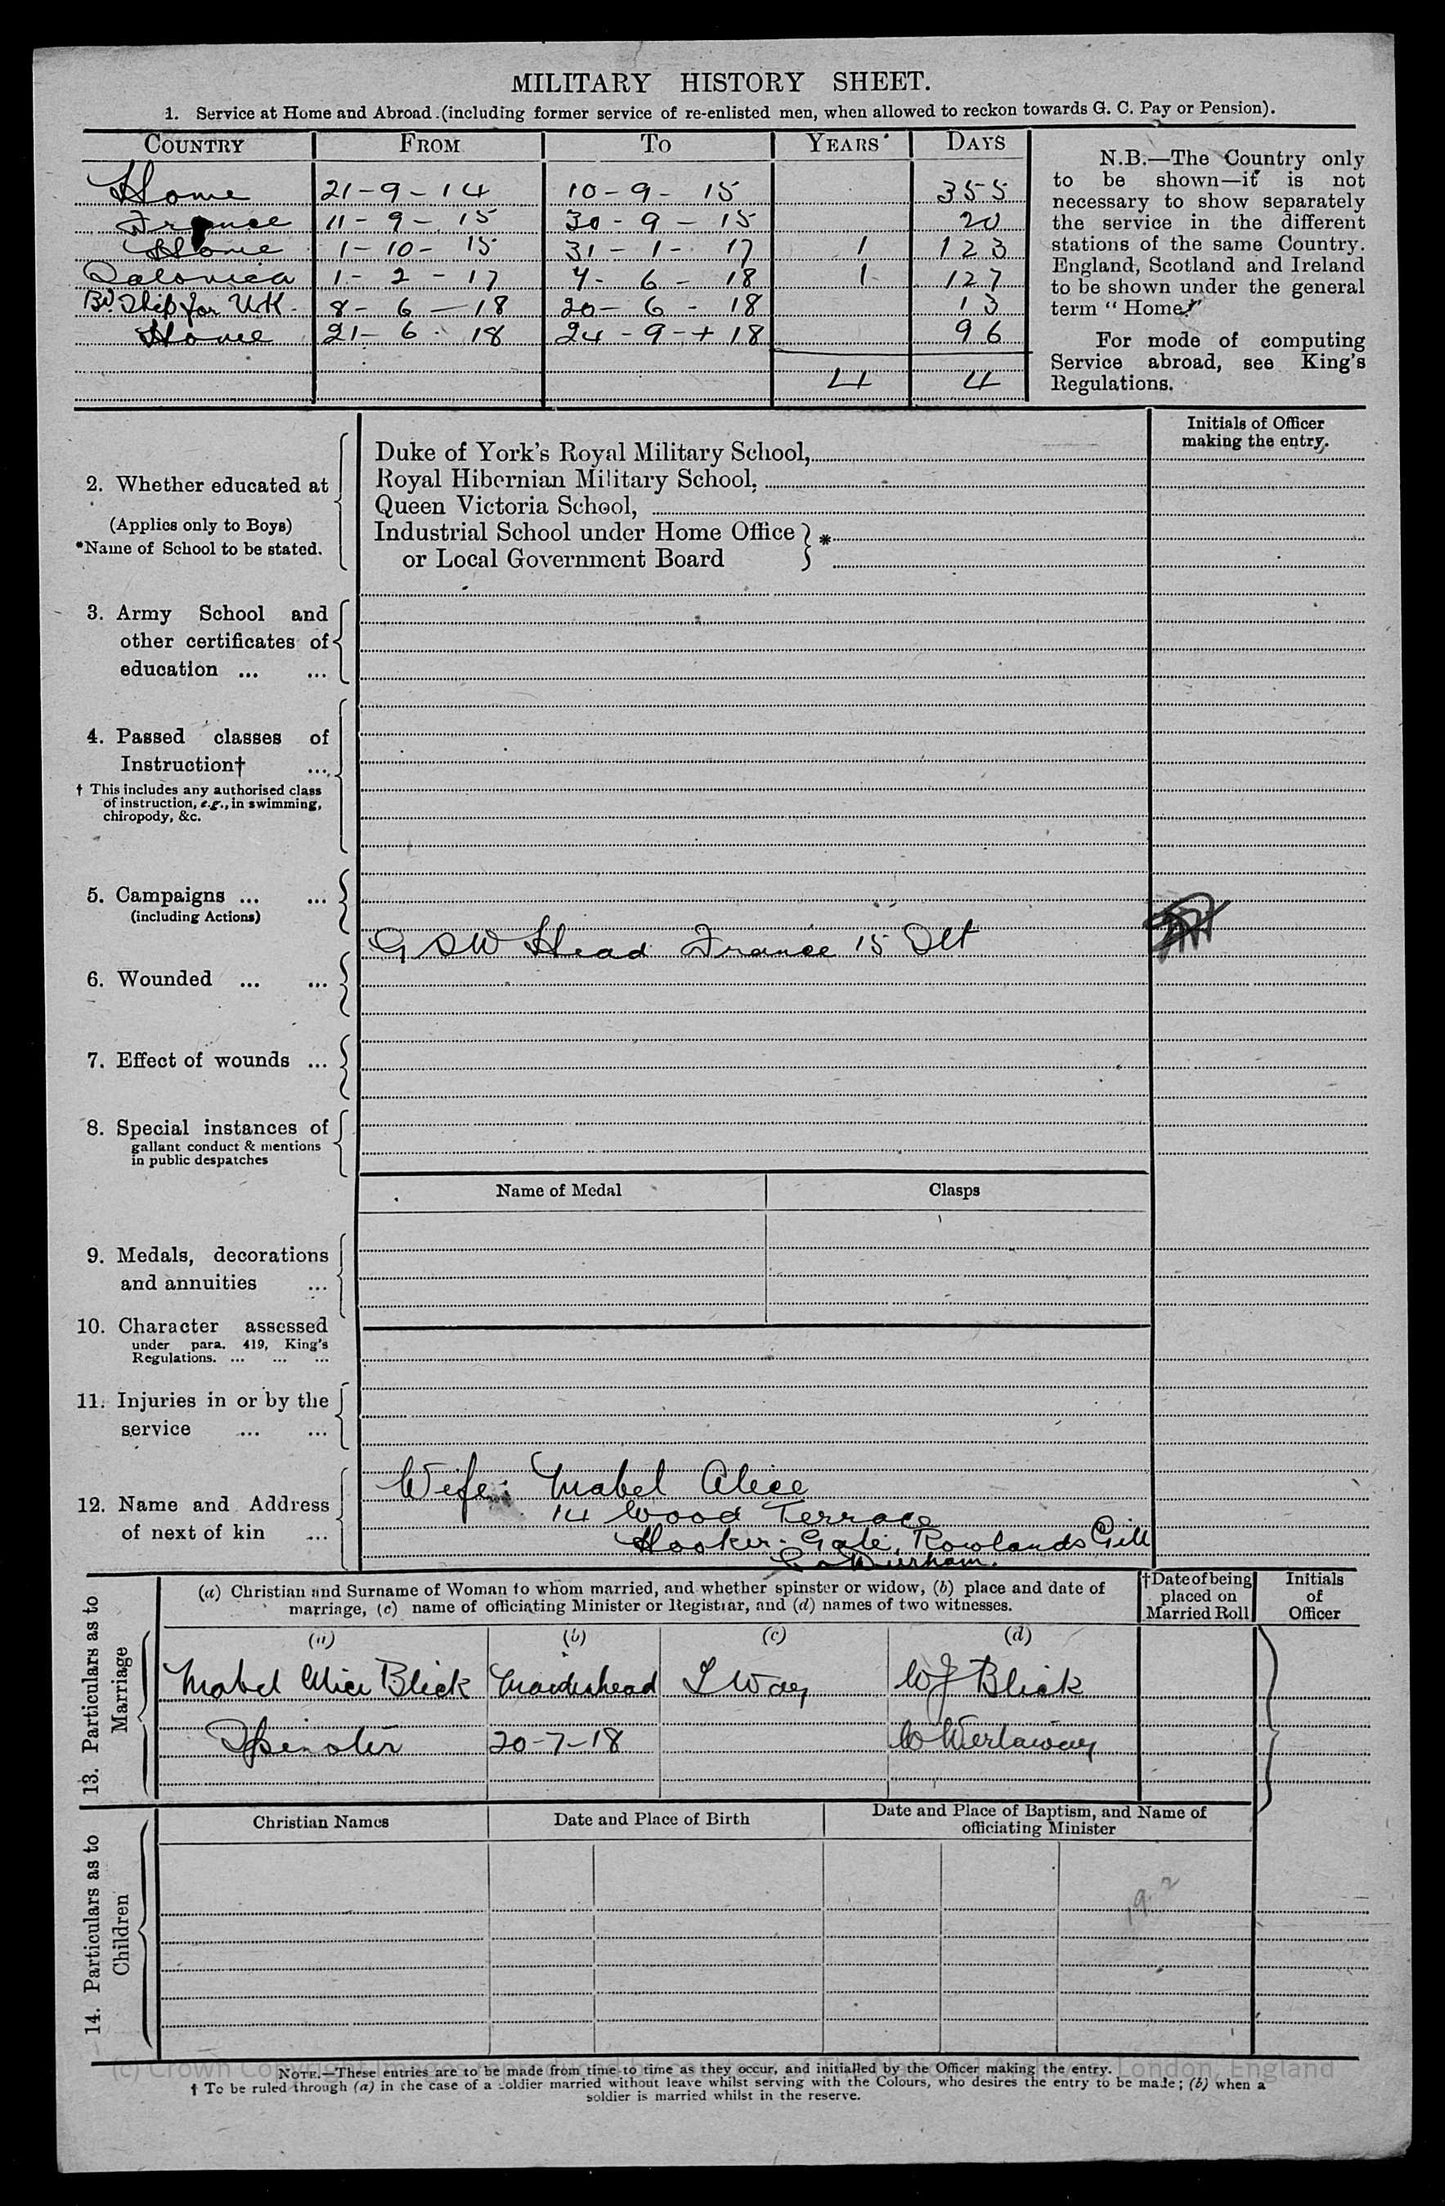 MILITARY HISTORY SHEET.
1. Service at Home and Abroad (including former service of re-enlisted men, when allowed to reckon towards G. C. Pay or Pension).
COUNTRY FROM TO YEARS DAYS
Home 21-9-14 10-9-15 355
France 11-9-15 30-9-15 20
Home 1-10-15 31-1-17 1 123
Salonica 1-2-17 7-6-18 1 127
Bd. Ship for UK. 8-6-18 20-6-18 13
Home 21-6-18 24-9-18 96
4 4
N.B.—The Country only
to be shown—it is not
necessary to show separately
the service in the different
stations of the same Country.
England, Scotland and Ireland
to be shown under the general
term "Home."
For mode of computing
Service abroad, see King's
Regulations.
Initials of Officer
making the entry.
2. Whether educated at
(Applies only to Boys)
*Name of School to be stated.
Duke of York's Royal Military School,
Royal Hibernian Military School,
Queen Victoria School,
Industrial School under Home Office
or Local Government Board } *
3. Army School and
other certificates of
education ... ...
4. Passed classes of
Instruction† ...
† This includes any authorised class
of instruction, e.g., in swimming,
chiropody, &c.
5. Campaigns ... ...
(including Actions)
G S W Head France 15
6. Wounded ... ...
7. Effect of wounds ...
8. Special instances of
gallant conduct & mentions
in public despatches
Name of Medal Clasps
9. Medals, decorations
and annuities ...
10. Character assessed
under para. 419, King's
Regulations. ... ... ...
11. Injuries in or by the
service ... ...
12. Name and Address
of next of kin ...
Wife: Mabel Alice
14 Wood Terrace
Hooker Gate, Rowlands Gill
Co Durham.
13. Particulars as to
Marriage
(a) Christian and Surname of Woman to whom married, and whether spinster or widow, (b) place and date of
marriage, (c) name of officiating Minister or Registrar, and (d) names of two witnesses.
†Date of being
placed on
Married Roll
Initials
of
Officer
(a) (b) (c) (d)
Mabel Alice Blick Maidenhead J Way W J Blick
Spinster 20-7-18
14. Particulars as to
Children
Christian Names Date and Place of Birth Date and Place of Baptism, and Name of
officiating Minister
(c) Crown Copyright London, England
NOTE.—These entries are to be made from time to time as they occur, and initialled by the Officer making the entry.
† To be ruled through (a) in the case of a soldier married without leave whilst serving with the Colours, who desires the entry to be made; (b) when a
soldier is married whilst in the reserve.